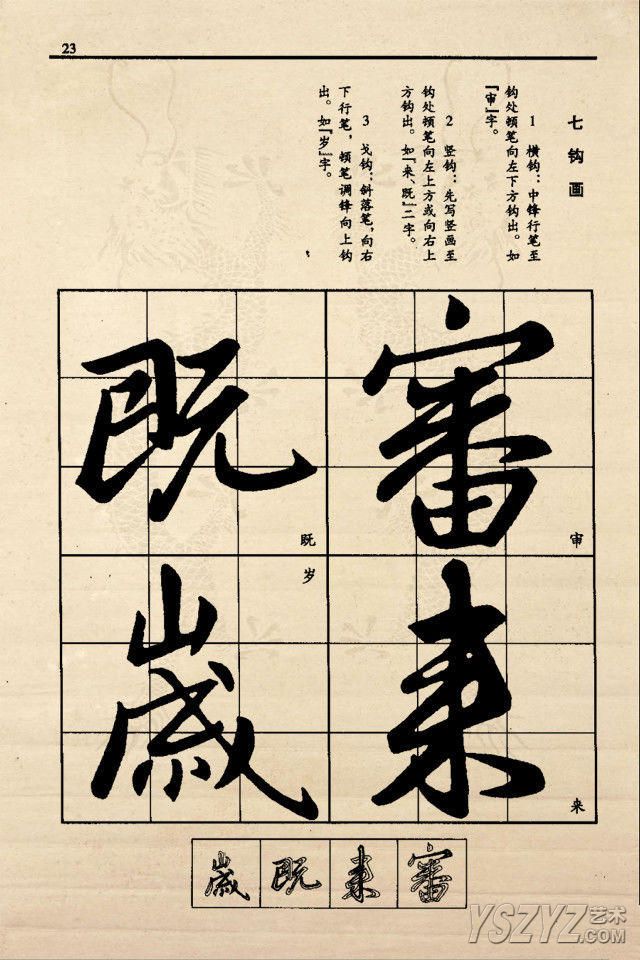 23
七 钩 画
1 横钩：中锋行笔至
钩处顿笔向左下方钩出。如
『审』字。
2 竖钩：先写竖画至
钩处顿笔向左上方或向右上
方钩出。如『来、既』二字。
3 戈钩：斜落笔，向右
下行笔，顿笔调锋向上钩
出。如『岁』字。
審
审
来
来
既
既
岁
歲
歲 既 来 審
YSZYZ艺术
.COM